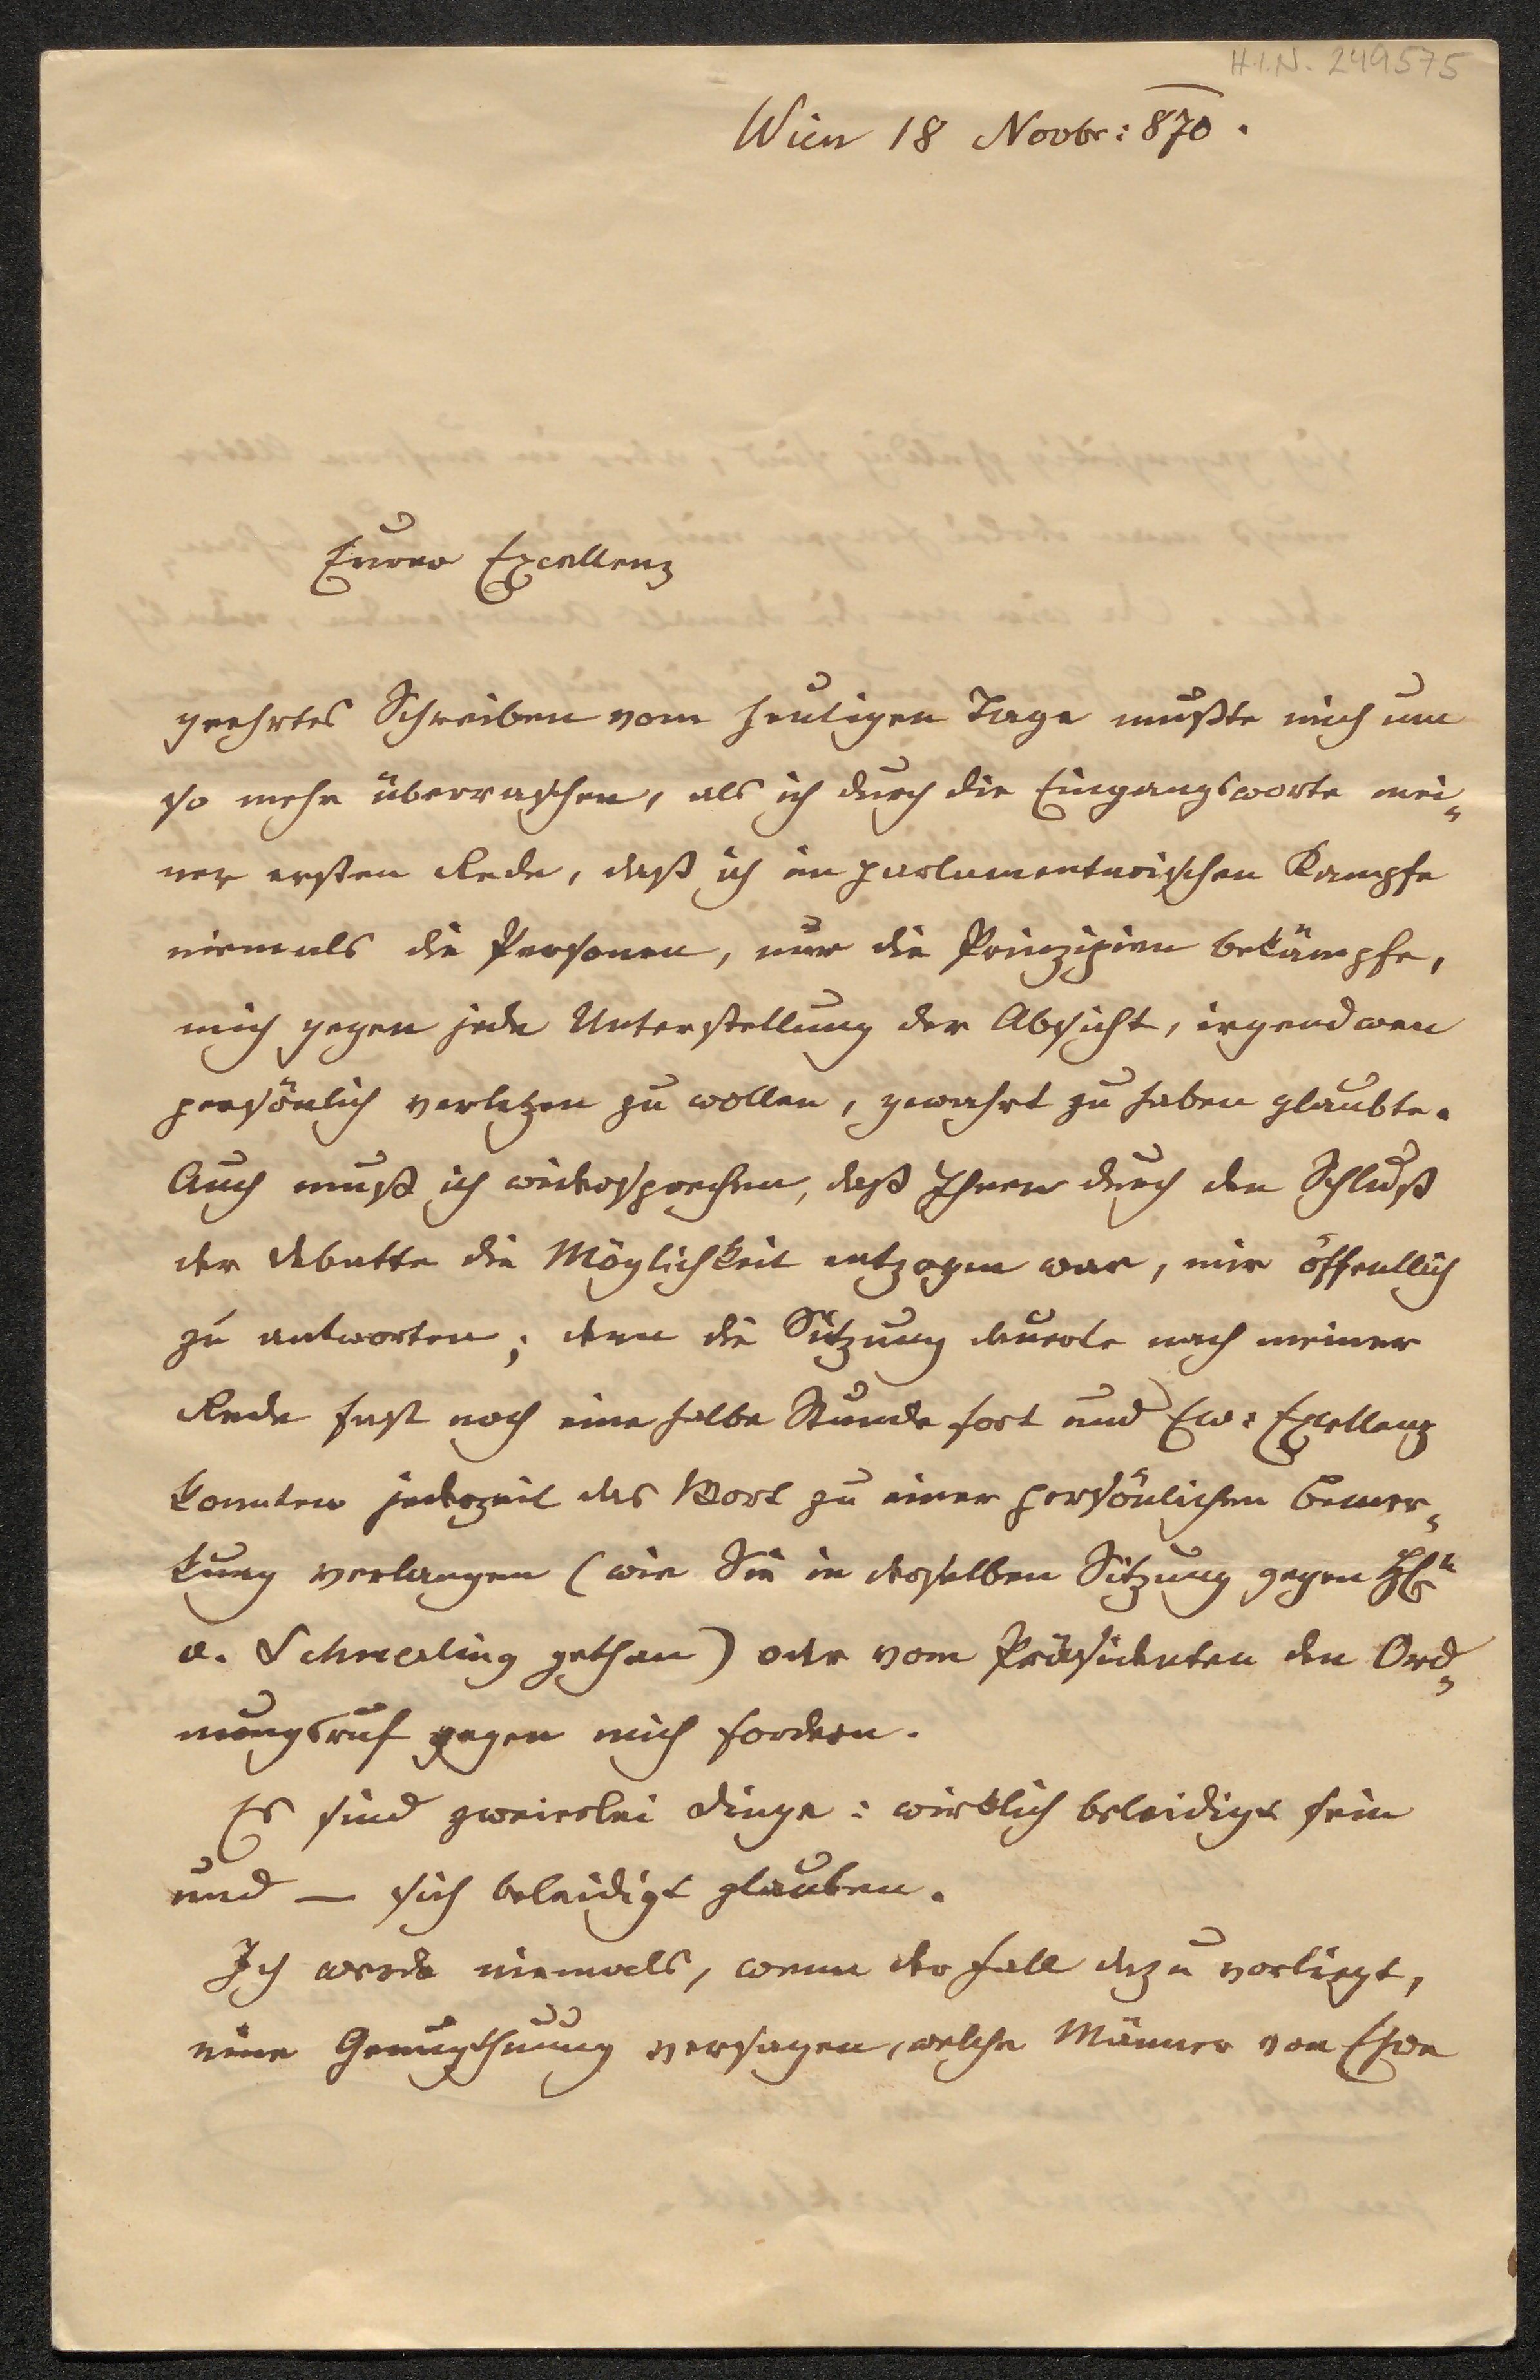 H.I.N. 249575
Wien 18 Novbr: 870.
Eurer Excellenz
geehrtes Schreiben vom heutigen Tage mußte mich um
so mehr überraschen, als ich durch die Eingangsworte mei„
ner ersten Rede, daß ich im parlamentarischen Kampfe
niemals die Personen, nur die Prinzipien bekämpfe,
mich gegen jede Unterstellung der Absicht, irgendwen
persönlich verletzen zu wollen, gewahrt zu haben glaubte.
Auch muß ich widersprechen, daß Ihnen durch den Schluß
der Debatte die Möglichkeit entzogen war, mir öffentlich
zu antworten; denn die Sitzung dauerte nach meiner
Rede fast noch eine halbe Stunde fort und Ew: Excellenz
konnten jederzeit das Wort zu einer persönlichen Bemer„
kung verlangen (wie Sie in derselben Sitzung gegen H.
v. Schmerling gethan) oder vom Präsidenten den Ord„
nungsruf gegen mich fordern.
Es sind zweierlei Dinge: wirklich beleidigt sein
und — sich beleidigt glauben.
Ich werde niemals, wenn der Fall dazu vorliegt,
eine Genugthuung versagen, welche Männer von Ehre